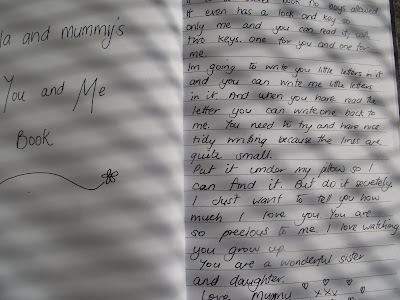 la and mummy's
You and Me
Book
book no boys allowed
It even has a lock and key so
only me and you can read it,
two keys. one for you and one for
me.
Im going to write you little letters in it
and you can write me little letters
in it. And when you have read the
letter you can write one back to
me. You need to try and have nice
tidy writing because the lines are
quite small.
Put it under my pillow so I
can find it. But do it secretely.
I Just want to tell you how
much I love you You are
so precious to me I love watching
you grow up.
You are a wonderful sister
and daughter.
Love Mummy
xxx